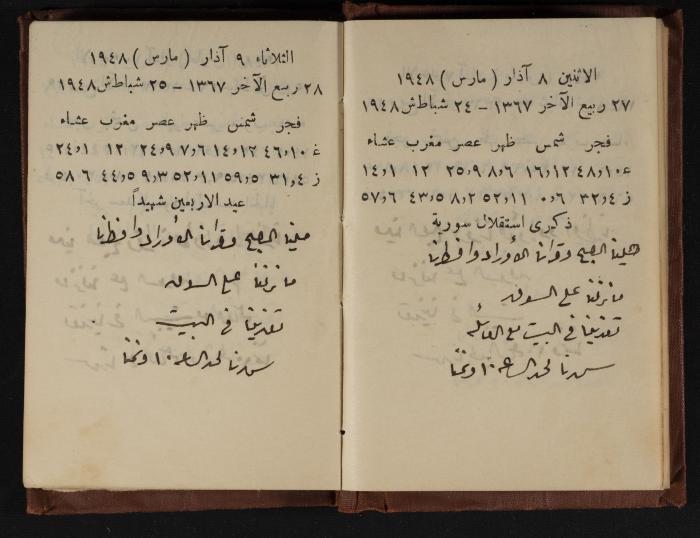 الاثنين ٨ آذار ( مارس ) ١٩٤٨
٢٧ ربيع الآخر ١٣٦٧ - ٢٤ شباط ش ١٩٤٨
فجر شمس ظهر عصر مغرب عشاء
غ ١٠و٤٨ ١٢و١٦ ٦و٨ ٩و٢٥ ١٢ ١و١٤
ز ٤و٣٢ ٦و٠ ١١و٥٢ ٢و٨ ٥و٤٣ ٦و٥٧
ذكرى استقلال سورية
صلينا الصبح وقرأنا الأوراد وافطرنا
ما نزلنا على السوق
تغدينا في البيت مع العائلة
سهرنا لحد الساعة ١٠ ونمنا
الثلاثاء ٩ آذار ( مارس ) ١٩٤٨
٢٨ ربيع الآخر ١٣٦٧ - ٢٥ شباط ش ١٩٤٨
فجر شمس ظهر عصر مغرب عشاء
غ ١٠و٤٦ ١٢و١٤ ٦و٧ ٩و٢٤ ١٢ ١و٢٤
ز ٤و٣١ ٥و٥٩ ١١و٥٢ ٣و٩ ٥و٤٤ ٦ ٥٨
عيد الاربعين شهيداً
صلينا الصبح وقرأنا الأوراد وافطرنا
ما نزلنا على السوق
تغدينا في البيت
سهرنا لحد الساعة ١٠ ونمنا